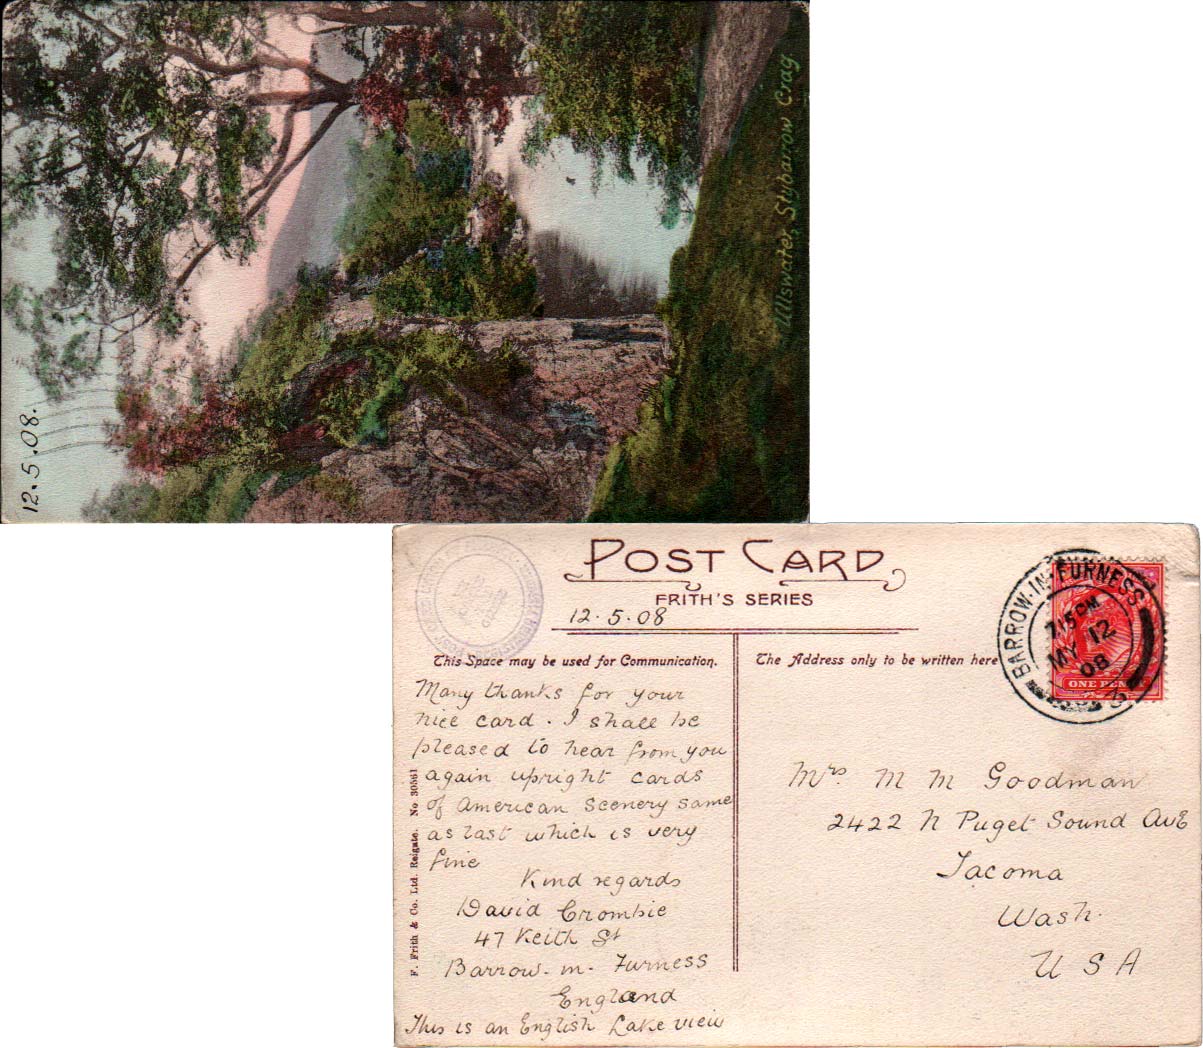 Ullswater, Stybarow Crag
12.5.08.
POST CARD
FRITH'S SERIES
12.5.08
This Space may be used for Communication.
The Address only to be written here
BARROW-IN-FURNESS
7.15PM
MY 12
08
ONE PEN
Many thanks for your
nice card. I shall be
pleased to hear from you
again upright cards
of American Scenery same
as last which is very
fine
Kind regards
David Crombie
47 Keith St
Barrow-in-Furness
England
This is an English Lake view
F. Frith & Co. Ltd. Reigate. No 30561
Mrs M M Goodman
2422 N Puget Sound Ave
Tacoma
Wash.
U S A